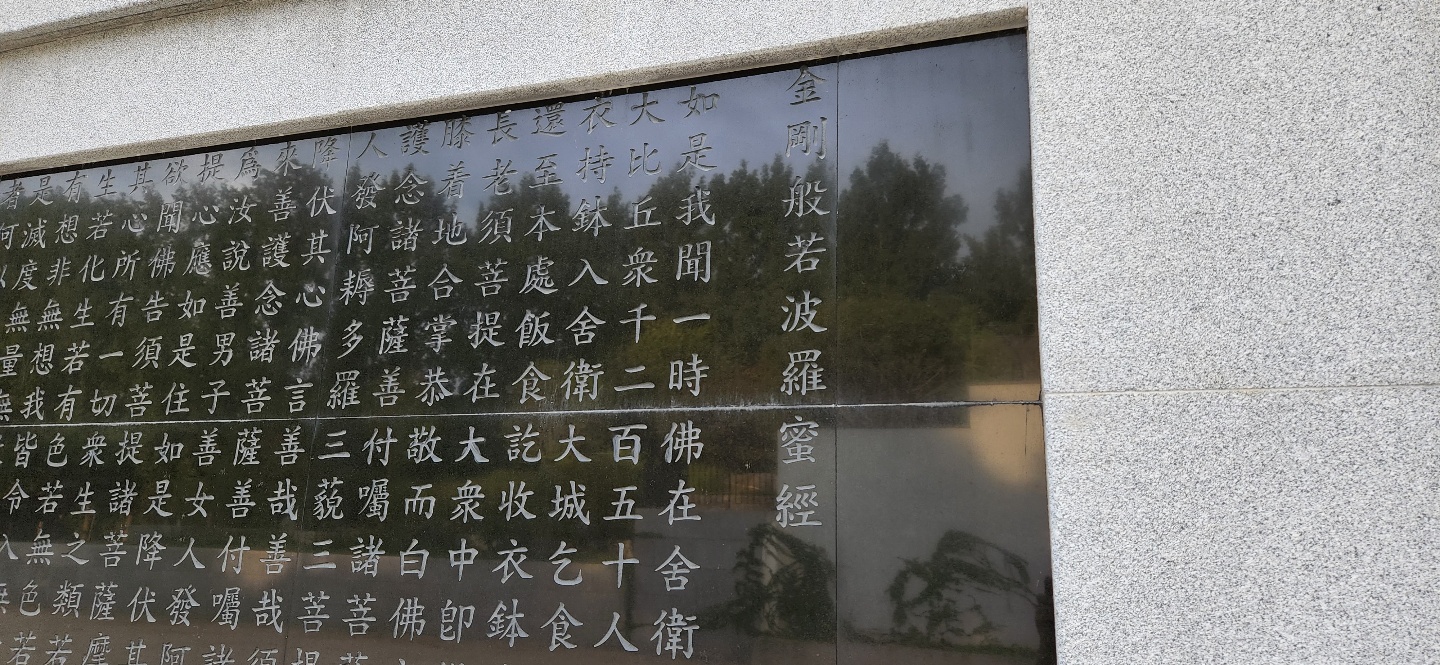 金剛般若波羅蜜經
如是我聞一時佛在舍衛
大比丘衆千二百五十人
衣持鉢入舍衛大城乞食
還至本處飯食訖收衣鉢
長老須菩提在大衆中卽
膝着地合掌恭敬而白佛
護念諸菩薩善付囑諸菩
人發阿耨多羅三藐三菩提
降伏其心佛言善哉善哉須
來善護念諸菩薩善付囑諸
爲汝說善男子善女人發阿
提心應如是住如是降伏其
欲聞佛告須菩提諸菩薩摩
其心所有一切衆生之類若
生若化生若有色若無色若
有想非無想我皆令入無
是滅度無量無
者何以